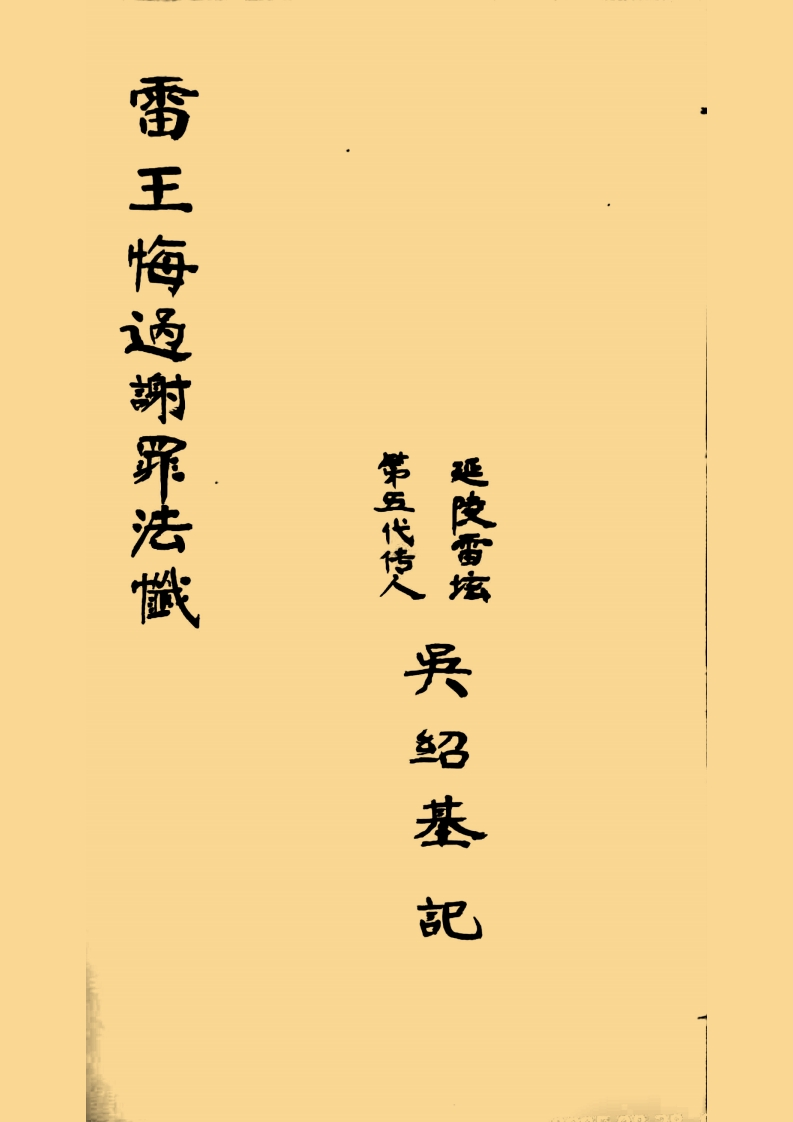 延陵雷坛
第五代传人
吳紹基記
雷王悔過謝罪法懺